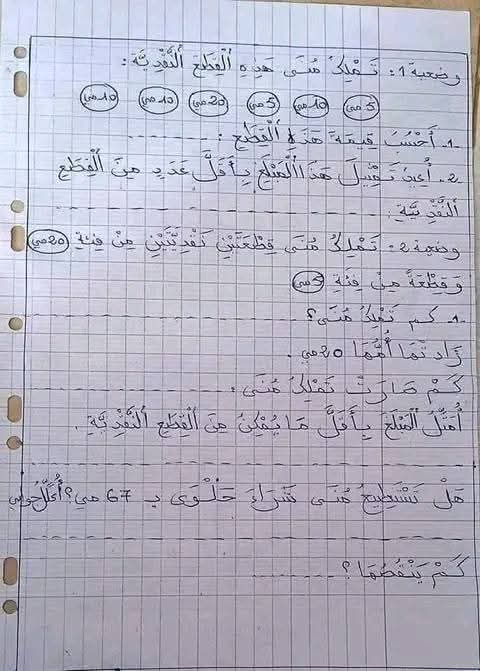 وضعية 1: تَمْلِكُ مُنَى هَذِهِ الْقِطَعَ النَّقْدِيَّةَ:
5مي 10مي 5مي 20مي 10مي 10مي
1- أَحْسُبُ قِيمَةَ هَذِهِ الْقِطَعِ:
2- أُعِيدُ تَمْثِيلَ هَذَا الْمَبْلَغِ بِأَقَلِّ عَدَدٍ مِنَ الْقِطَعِ
النَّقْدِيَّةِ.
وضعية 2: تَمْلِكُ مُنَى قِطْعَتَيْنِ نَقْدِيَّتَيْنِ مِنْ فِئَةِ 20مي
وَقِطْعَةً مِنْ فِئَةِ 5مي
1- كم تَمْلِكُ مُنَى؟
زَادَتْهَا أُمُّهَا 20مي.
كَمْ صَارَتْ تَمْلِكُ مُنَى:
أُمَثِّلُ الْمَبْلَغَ بِأَقَلَّ مَا يُمْكِنُ مِنَ الْقِطَعِ النَّقْدِيَّةِ.
هَلْ تَسْتَطِيعُ مُنَى شَرَاءَ حَلْوَى بِـ 67 مي؟ أُعَلِّلُ جَوَابِي
كَمْ يَنْقُصُهَا؟